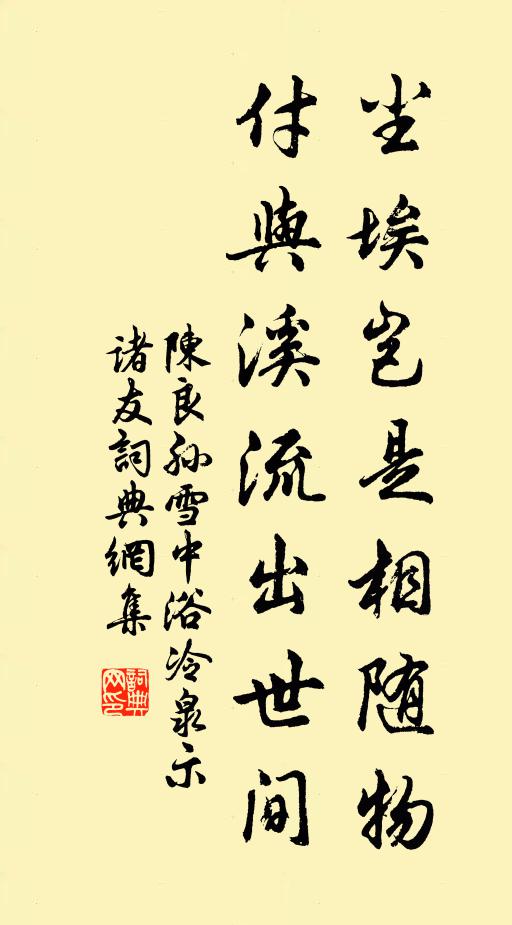 尘埃岂是相随物
付与溪流出世间
陳良孙雪中浴冷泉示
诸友詞典網集
詞典
网印